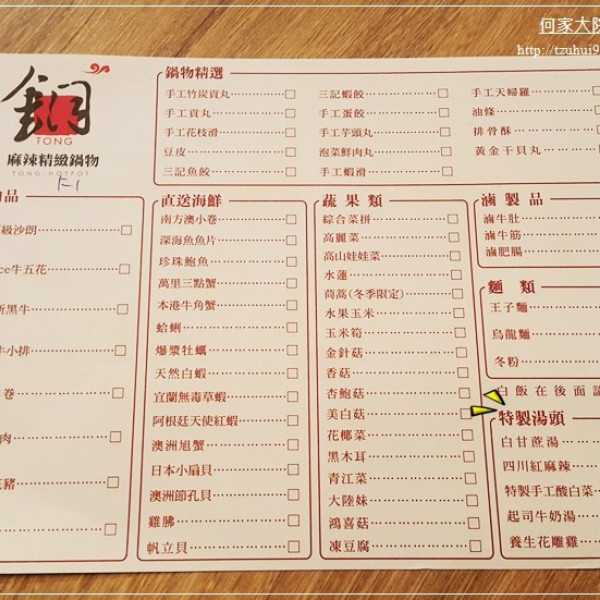 何家大院
http://tzuhui9
銅
TONG
麻辣精緻鍋物
TONG HOTPOT
F-1
鍋物精選
手工竹炭貢丸
手工貢丸
手工花枝滑
豆皮
三記魚餃
三記蝦餃
手工蛋餃
手工芋頭丸
泡菜鮮肉丸
手工蝦滑
手工天婦羅
油條
排骨酥
黃金干貝丸
品
級沙朗
ce牛五花
黑牛
牛小排
卷
肉
豬
直送海鮮
南方澳小卷
深海魚魚片
珍珠鮑魚
萬里三點蟹
本港牛角蟹
蛤蜊
爆漿牡蠣
天然白蝦
宜蘭無毒草蝦
阿根廷天使紅蝦
澳洲旭蟹
日本小扇貝
澳洲節孔貝
雞胇
帆立貝
蔬果類
綜合菜拼
高麗菜
高山娃娃菜
水蓮
茼蒿(冬季限定)
水果玉米
玉米筍
金針菇
香菇
杏鮑菇
美白菇
花椰菜
黑木耳
青江菜
大陸妹
鴻喜菇
凍豆腐
滷製品
滷牛肚
滷牛筋
滷肥腸
麵類
王子麵
烏龍麵
冬粉
白飯在後面
特製湯頭
白甘蔗湯
四川紅麻辣
特製手工酸白菜
起司牛奶湯
養生花雕雞